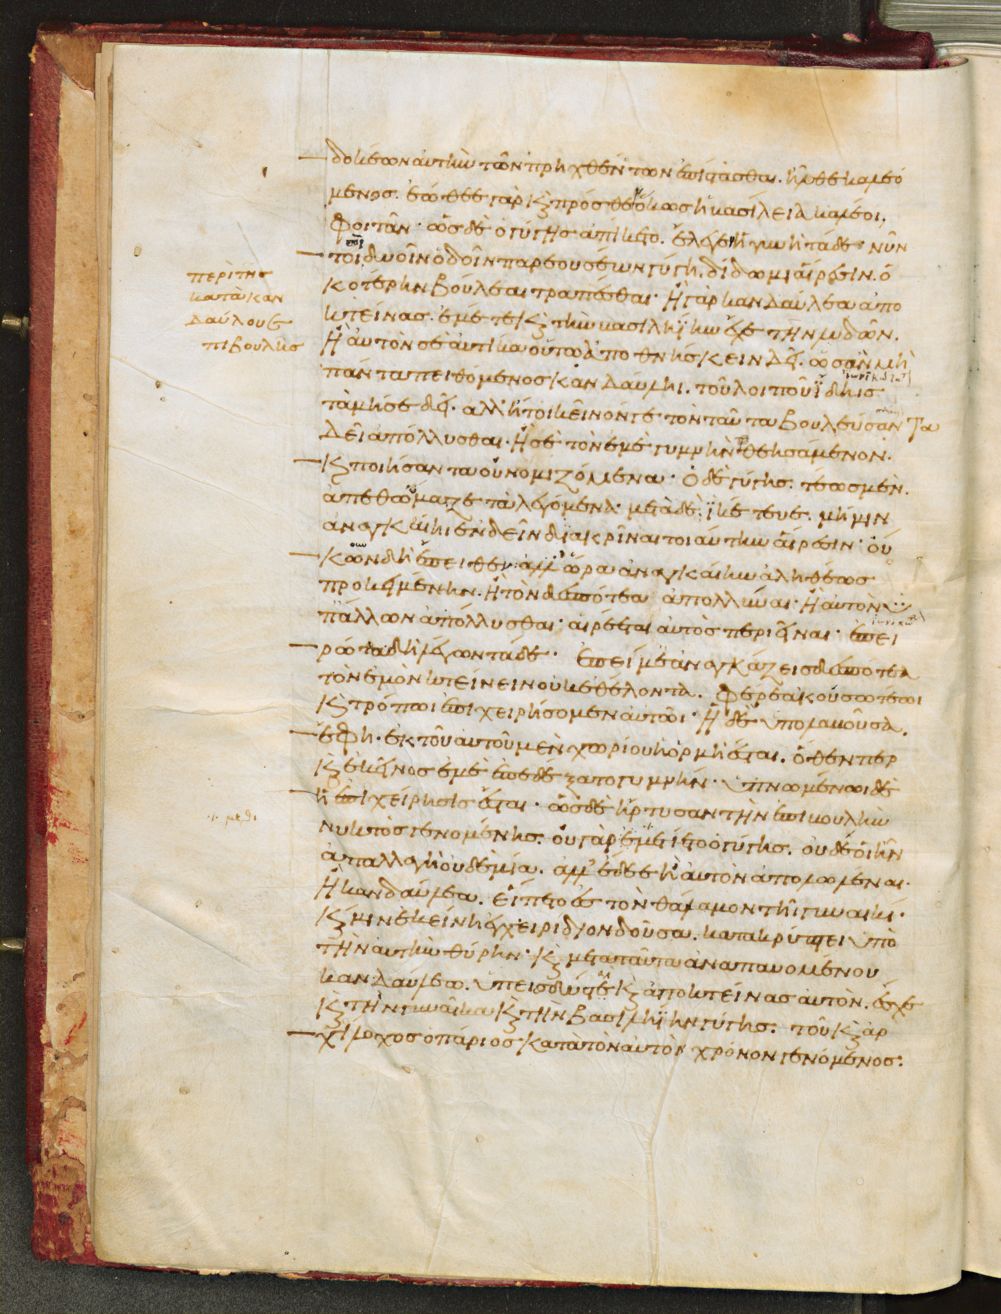 δοκέων αὐτὴν τῶν πρηχθέντων ἐπίστασθαι. ἦλθε καλεό
μενος. ἐώθεε γὰρ καὶ πρόσθε ὅκως ἡ βασίλεια καλέοι.
φοιτᾶν· ὡς δὲ ὁ γύγης ἀπίκετο. ἔλεγε ἡ γυνὴ τάδε· νῦν
τοι δυοῖν ὁδοῖν παρεουσέων γύγη. δίδωμι αἵρεσιν. ὁ
κοτέρην βούλεαι τραπέσθαι· ἢ γὰρ κανδαύλεα ἀπο
κτείνας. ἐμέ τε καὶ τὴν βασιληίην ἔχε τὴν λυδῶν.
ἢ αὐτόν σε αὐτίκα οὕτω ἀποθνήσκειν δεῖ. ὡς ἂν μὴ
πάντα πειθόμενος κανδαύλῃ. τοῦ λοιποῦ ἴδῃς
τὰ μή σε δεῖ. ἀλλ' ἤτοι κεῖνόν γε· τὸν ταῦτα βουλεύσαντα
δεῖ ἀπόλλυσθαι. ἢ σὲ τὸν ἐμὲ γυμνὴν θεησάμενον.
καὶ ποιήσαντα οὐ νομιζόμενα· ὁ δὲ γύγης. τέως μὲν.
ἀπεθώμαζε τὰ λεγόμενα· μετὰ δὲ ἱκέτευε. μή μιν
ἀναγκαίῃ ἐνδεῖν διακρῖναι τοιαύτην αἵρεσιν· οὐκ
ὦν δὴ ἔπειθεν· ἀλλ' ὥρα ἀναγκαίην ἀληθέως
προκειμένην. ἢ τὸν δεσπότεα ἀπολλύναι. ἢ αὐτὸν ὑπ'
ἄλλων ἀπόλλυσθαι· αἱρέεται αὐτὸς περιεῖναι· ἐπει
ρώτα δὴ λέγων τάδε· ἐπεί με ἀναγκάζεις δεσπότεα
τὸν ἐμὸν κτείνειν οὐκ ἐθέλοντα. φέρε ἀκούσω τέῳ
καὶ τρόπῳ ἐπιχειρήσομεν αὐτῷ· ἡ δὲ ὑπολαβοῦσα.
ἔφη. ἐκ τοῦ αὐτοῦ μὲν χωρίου ἡ ὁρμὴ ἔσται. ὅθεν περ
καὶ ἐκεῖνος ἐμὲ ἐπεδέξατο γυμνήν· ὑπνωμένῳ δὲ
ἡ ἐπιχείρησις ἔσται· ὡς δὲ ἤρτυσαν τὴν ἐπιβουλὴν
νυκτὸς γενομένης. οὐ γὰρ ἐμετίετο ὁ γύγης. οὐδέ οἱ ἦν
ἀπαλλαγὴ οὐδεμία. ἀλλ' ἔδεε ἢ αὐτὸν ἀπολωλέναι.
ἢ κανδαύλεα. εἵπετο ἐς τὸν θάλαμον τῇ γυναικί.
καί μιν ἐκείνη ἐγχειρίδιον δοῦσα. κατακρύπτει ὑπὸ
τὴν αὐτὴν θύρην· καὶ μετὰ ταῦτα ἀναπαυομένου
κανδαύλεω. ὑπεισδύς τε καὶ ἀποκτείνας αὐτὸν. ἔσχε
καὶ τὴν γυναῖκα καὶ τὴν βασιληίην γύγης. τοῦ καὶ ἀρ
χίλοχος ὁ πάριος κατὰ τὸν αὐτὸν χρόνον γενόμενος:
περὶ τῆς
κατὰ καν
δαύλου ἐ
πιβουλῆς